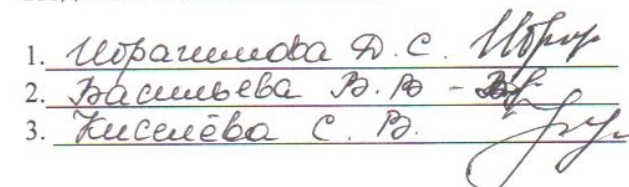 1. Ибрагимова Д. С.
2. Васильева В. В -
3. Киселёва С. В.